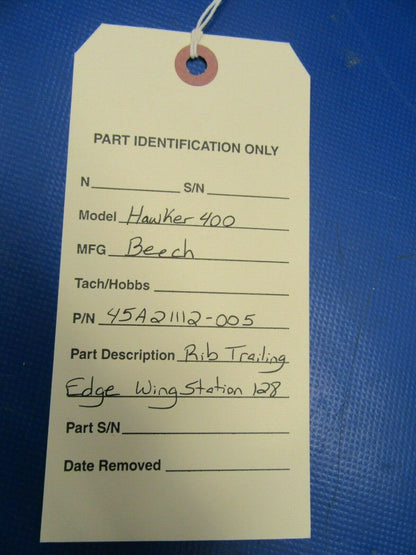 PART IDENTIFICATION ONLY
N__________ S/N__________
Model Hawker 400
MFG Beech
Tach/Hobbs __________
P/N 45A21112-005
Part Description Rib Trailing
Edge Wing Station 128
Part S/N__________
Date Removed __________